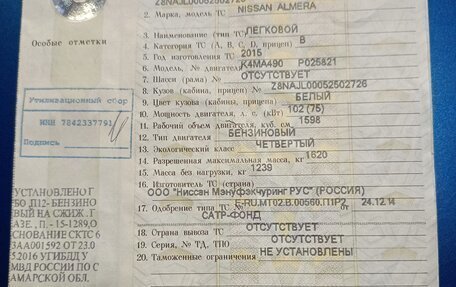 Z8NAJL00052502726
2. Марка, модель ТС NISSAN ALMERA
3. Наименование (тип ТС) ЛЕГКОВОЙ
4. Категория ТС (А, В, С, D, прицеп) В
5. Год изготовления ТС 2015
6. Модель, № двигателя K4MA490 P025821
7. Шасси (рама) № ОТСУТСТВУЕТ
8. Кузов (кабина, прицеп) № Z8NAJL00052502726
9. Цвет кузова (кабины, прицепа) БЕЛЫЙ
10. Мощность двигателя, л. с. (кВт) 102 (75)
11. Рабочий объем двигателя, куб. см 1598
12. Тип двигателя БЕНЗИНОВЫЙ
13. Экологический класс ЧЕТВЕРТЫЙ
14. Разрешенная максимальная масса, кг 1620
15. Масса без нагрузки, кг 1239
16. Изготовитель ТС (страна)
ООО "Ниссан Мэнуфэкчуринг РУС" (РОССИЯ)
17. Одобрение типа ТС № E-RU.MT02.B.00560.П1Р2 от 24.12.14
САТР-ФОНД
18. Страна вывоза ТС ОТСУТСТВУЕТ
19. Серия, № ТД, ТПО ОТСУТСТВУЕТ
20. Таможенные ограничения НЕ УСТАНОВЛЕНЫ
Особые отметки
Утилизационный сбор
ИНН 7842337791
Подпись
УСТАНОВЛЕНО Г
БО Д12- БЕНЗИНО
ВЫЙ НА СЖИЖ . Г
АЗЕ, . П, - 15-1289,О
СНОВАНИЕ СКТС 6
3АА001592 ОТ 23.0
5.2016 УГИБДД У
МВД РОССИИ ПО С
АМАРСКОЙ ОБЛ.